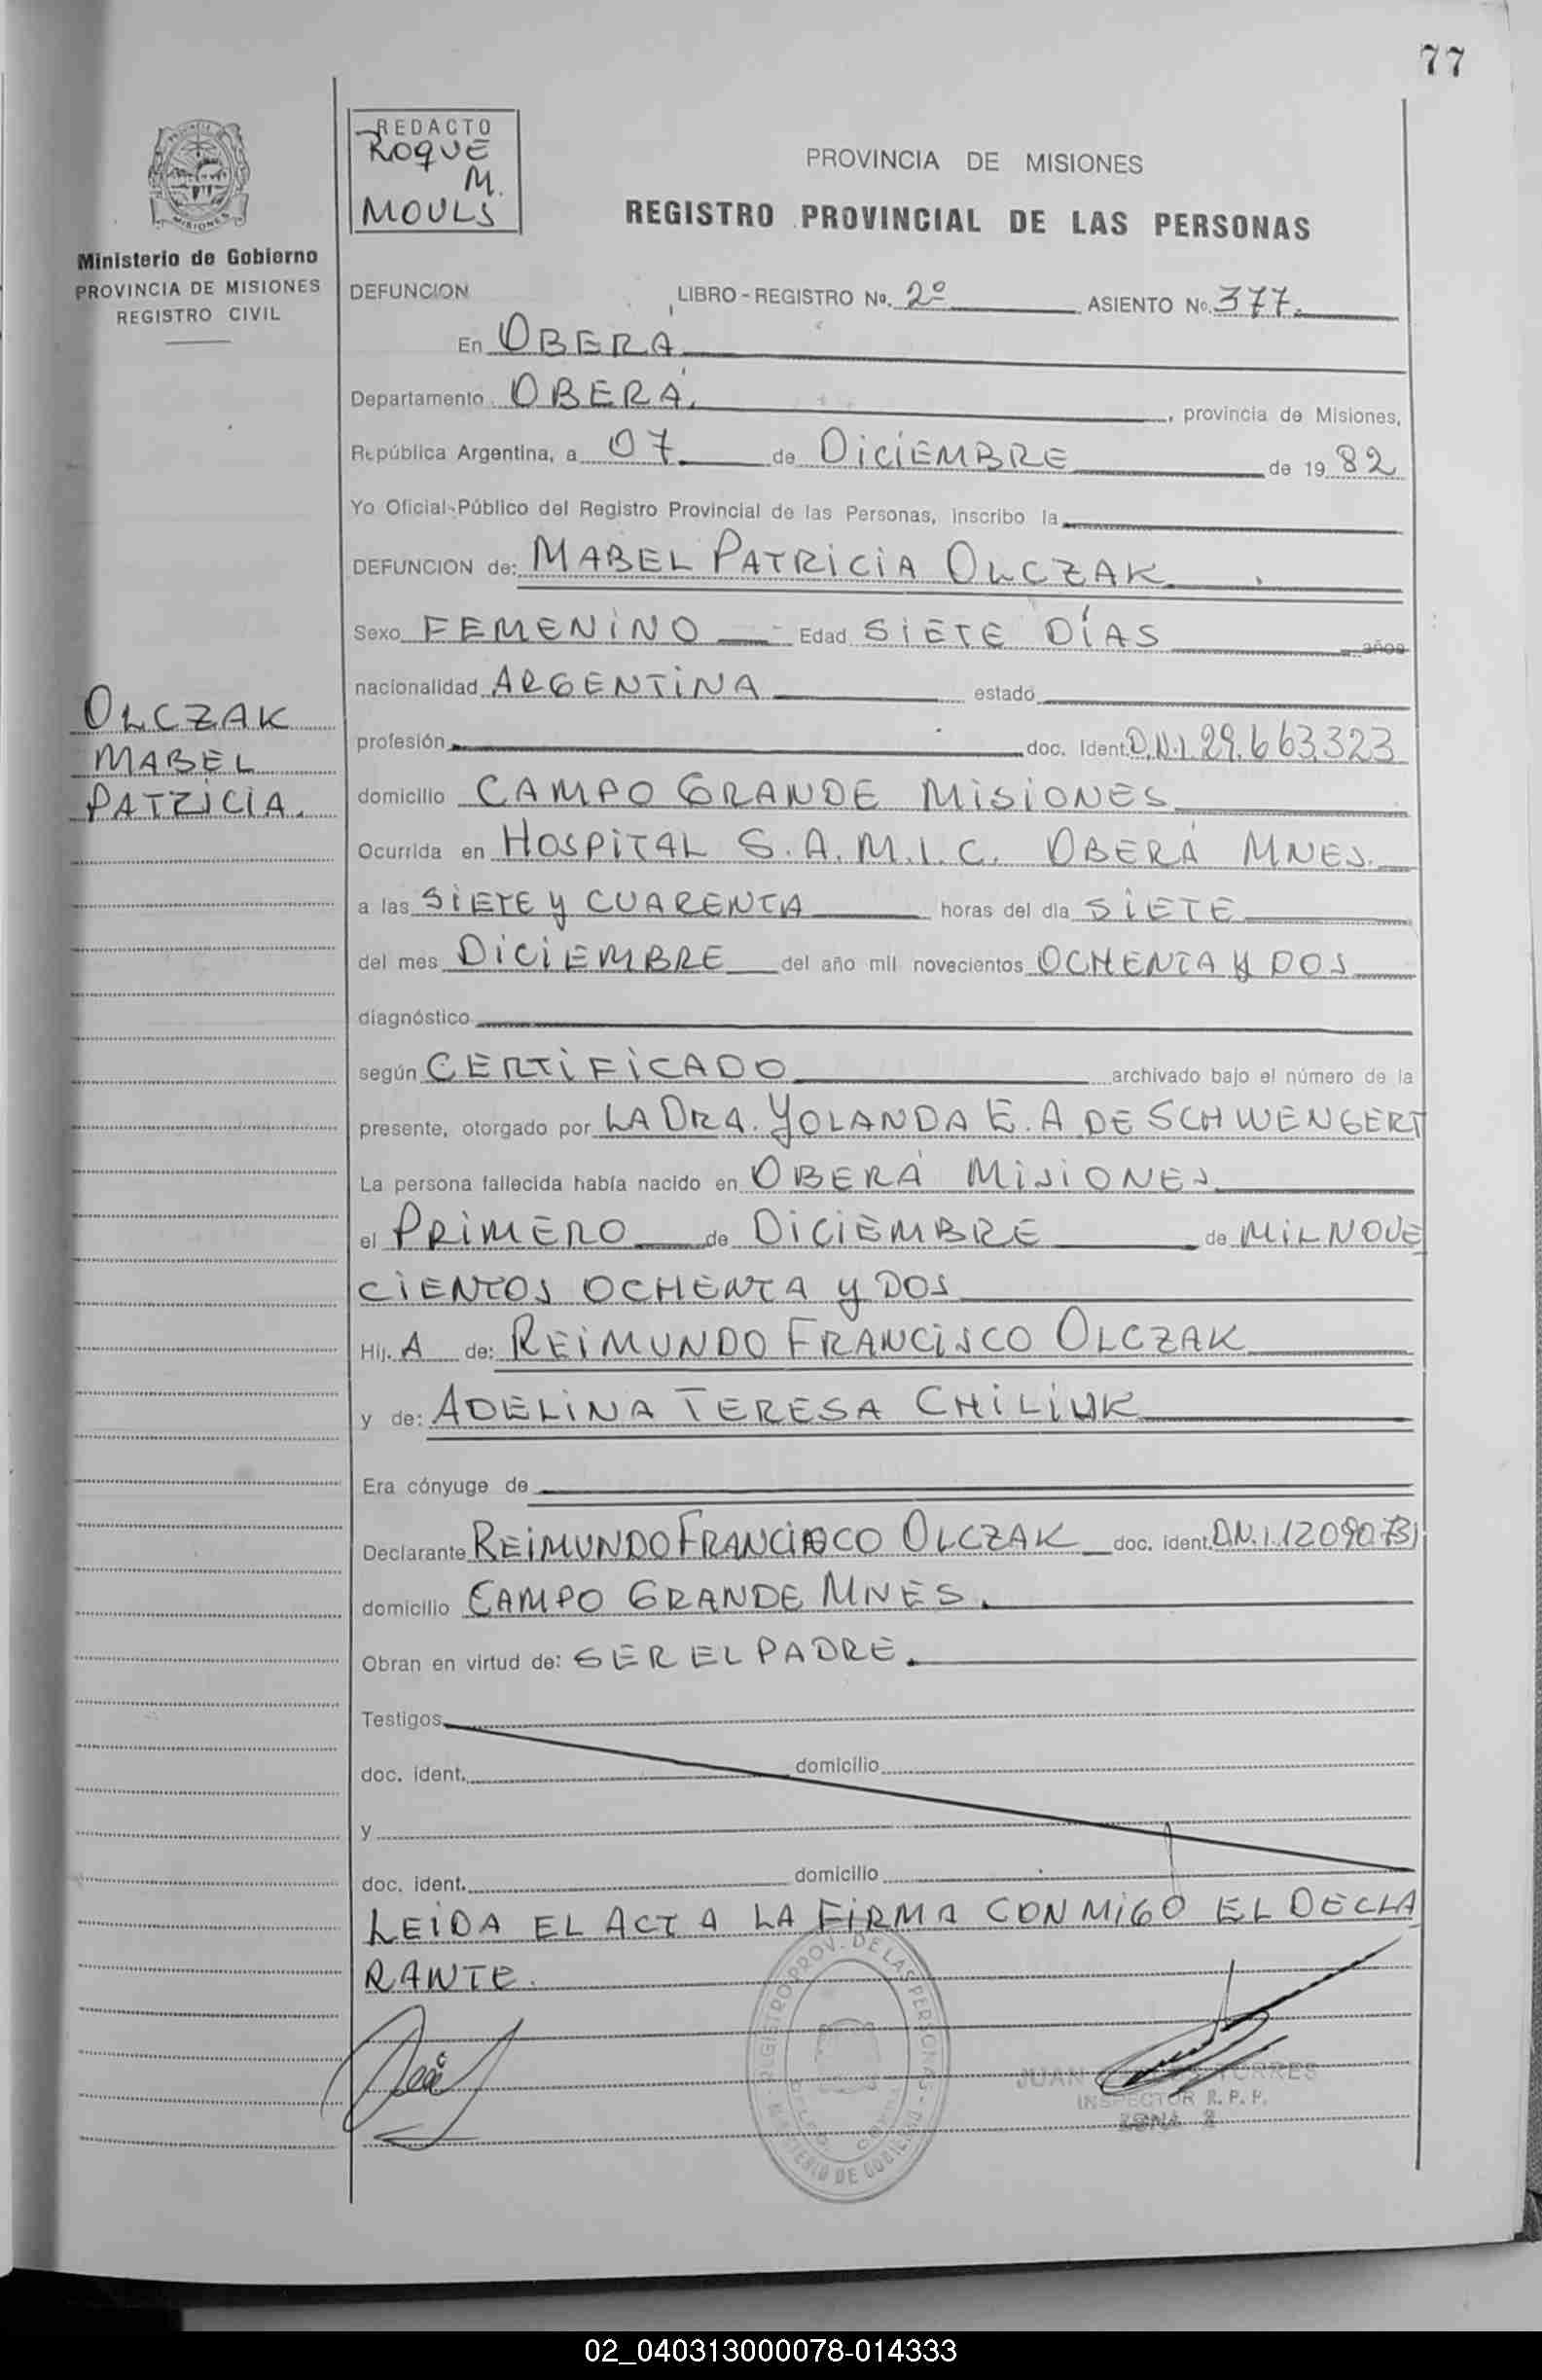 77
REDACTO
ROQUE
M.
MOULS
PROVINCIA DE MISIONES
REGISTRO PROVINCIAL DE LAS PERSONAS
Ministerio de Gobierno
PROVINCIA DE MISIONES
REGISTRO CIVIL
DEFUNCION LIBRO-REGISTRO No. 2º ASIENTO No. 377.
En OBERÁ
Departamento OBERÁ, provincia de Misiones,
República Argentina, a 07 de DICIEMBRE de 19 82
Yo Oficial Público del Registro Provincial de las Personas, inscribo la
DEFUNCION de: MABEL PATRICIA OLCZAK
Sexo FEMENINO Edad SIETE DÍAS años
nacionalidad ARGENTINA estado
OLCZAK
MABEL
PATRICIA.
profesión doc. Ident. D.N.I. 29.663.323
domicilio CAMPO GRANDE MISIONES
Ocurrida en HOSPITAL S.A.M.I.C. OBERÁ MNES.
a las SIETE Y CUARENTA horas del día SIETE
del mes DICIEMBRE del año mil novecientos OCHENTA Y DOS
diagnóstico
según CERTIFICADO archivado bajo el número de la
presente, otorgado por LA DRA. YOLANDA E. A DE SCHWENGERT
La persona fallecida había nacido en OBERÁ MISIONES
el PRIMERO de DICIEMBRE de MIL NOVE
CIENTOS OCHENTA Y DOS
Hij. A de: REIMUNDO FRANCISCO OLCZAK
y de: ADELINA TERESA CHILIUK
Era cónyuge de
Declarante REIMUNDO FRANCISCO OLCZAK doc. ident. D.N.I.
domicilio CAMPO GRANDE MNES.
Obran en virtud de: SER EL PADRE.
Testigos
doc. ident. domicilio
y
doc. ident. domicilio
LEIDA EL ACTA LA FIRMA CONMIGO EL DECLA
RANTE.
REGISTRO PROV. DE LAS PERSONAS
MINISTERIO DE GOBIERNO
JUAN TORRES
INSPECTOR R. P. P.
ZONA 2
02_040313000078-014333